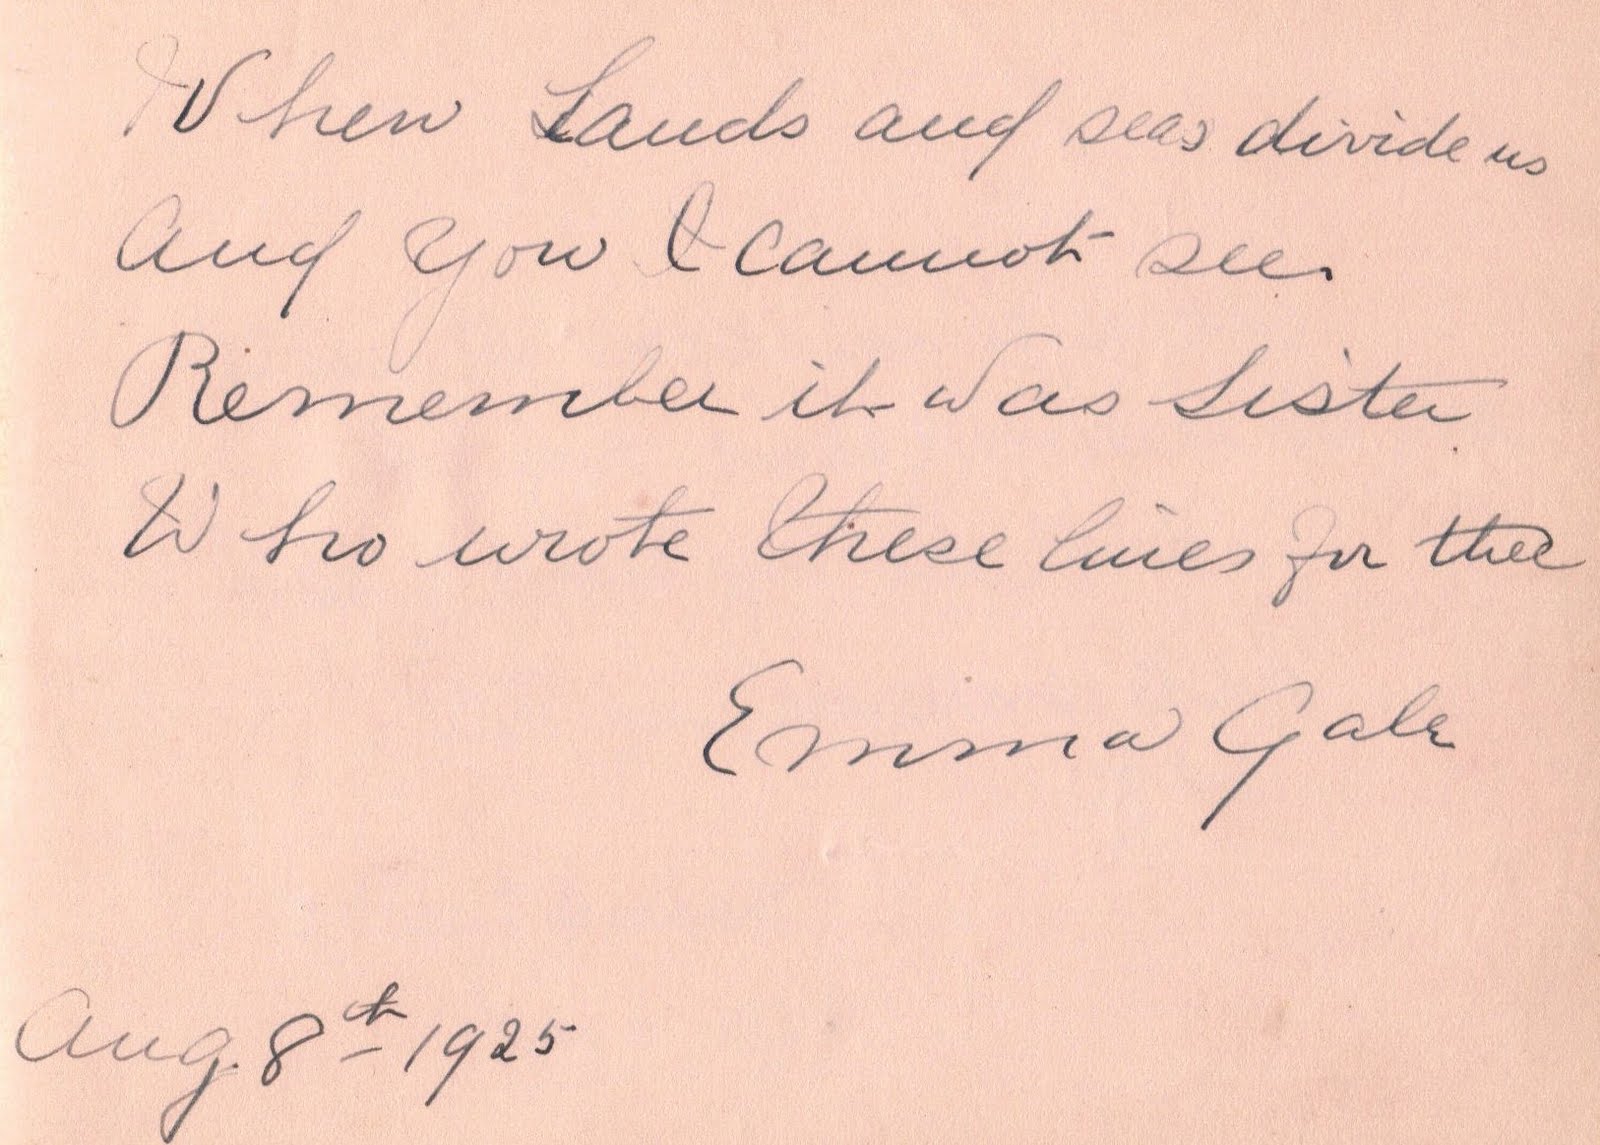 When Lands and seas divide us
And you I cannot see.
Remember it was Sister
Who wrote these lines for thee
Emma Gale
Aug. 8th 1925